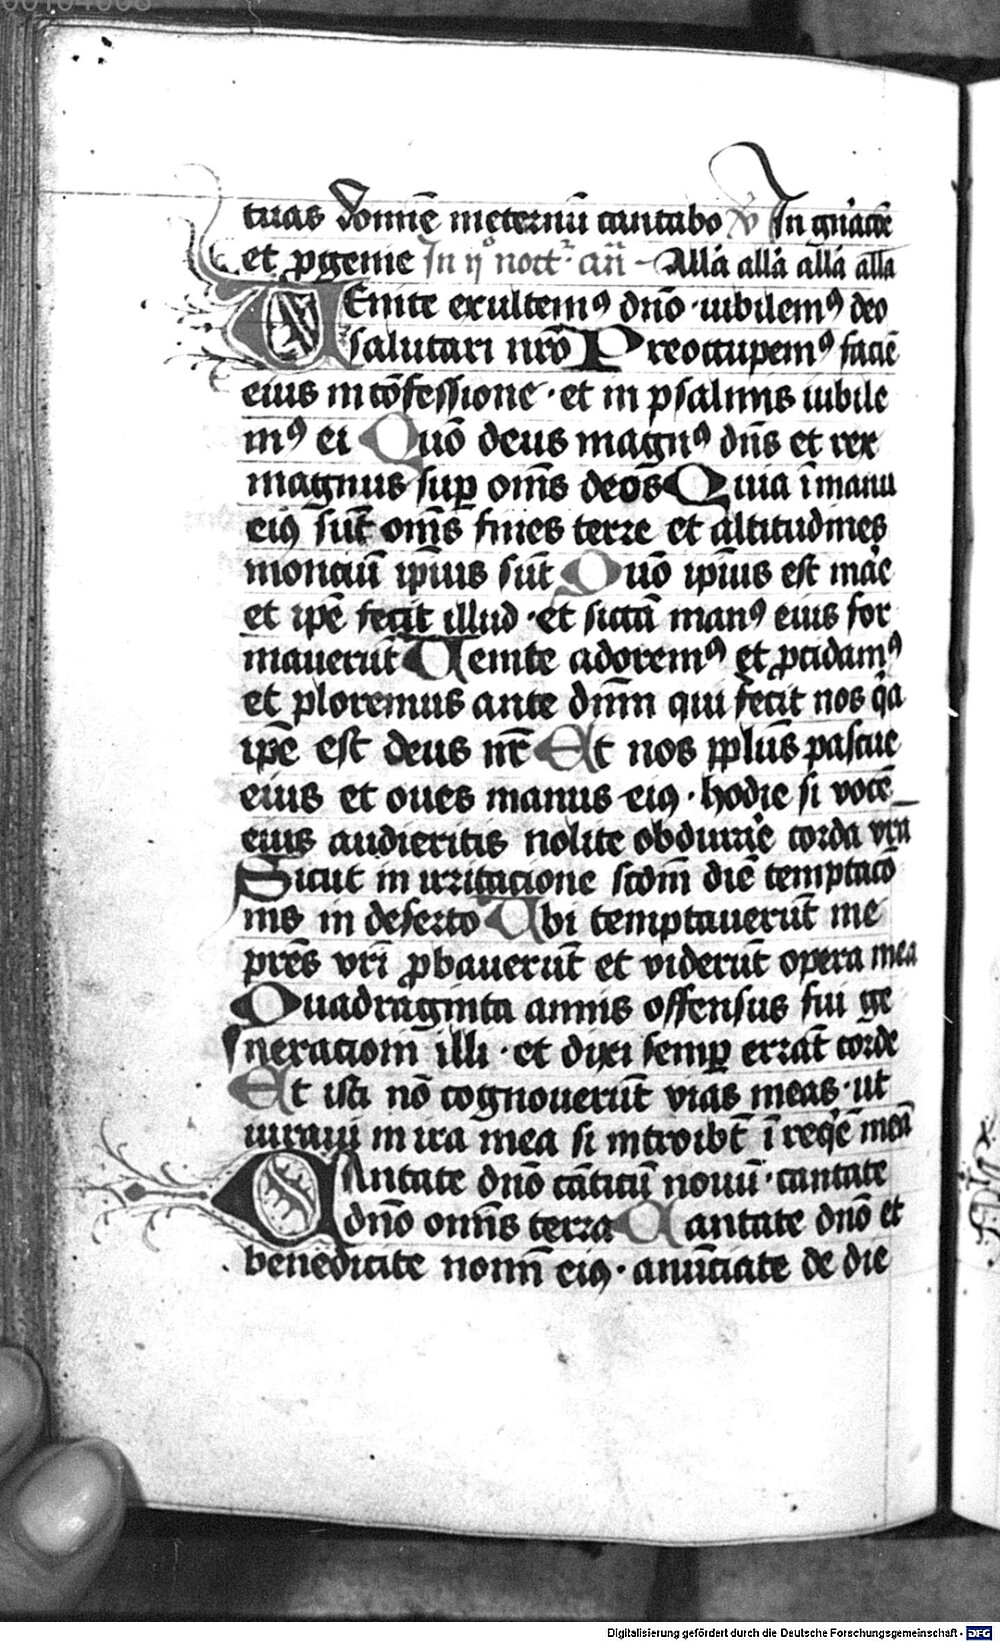 tuas domine ineternū cantabo ꝟ In gn̄acōe
et ꝓgenie In ij° noct͛ · an̄ – Alla alla alla alla
UEnite exultemꝰ dn̄o · iubilemꝰ deo
salutari nr̄o Preoccupemꝰ faciē
eius in cōfessione · et in psalmis iubile
mꝰ ei Quō deus magnꝰ dn̄s et rex
magnus suꝑ om̄s deos Quia ī manu
eiꝰ sūt om̄s fines terre et altitudines
monciū ip̄ius sūt Quō ip̄ius est mar̄e
et ip̄e fecit illud · et siccā manꝰ eius for
mauerūt Uenite adoremꝰ et ꝓcidamꝰ
et ploremus ante dn̄m qui fecit nos qͥa
ip̄e est deus nr̄ Et nos pplūs pascue
eius et oues manus eiꝰ · hodie si vocē
eius audieritis nolite obdurar̄e corda vr̄a
Sicut in irritacione scdm̄ diē temptacō
nis in deserto Ubi temptauerūt me
pr̄es vr̄i ꝓbauerūt et viderūt opera mea
Quadraginta annis offensus fui ge
neracioni illi · et dixi semꝑ errāt corde
Et isti nō cognouerūt vias meas · ut
iuraui in ira mea si introibt̄ ī reqͥē meā
CAntate dn̄o cāticū nouū · cantate
dn̄o omnis terra Cantate dn̄o et
benedicite nomī eiꝰ · anūciate de die
Digitalisierung gefördert durch die Deutsche Forschungsgemeinschaft - DFG